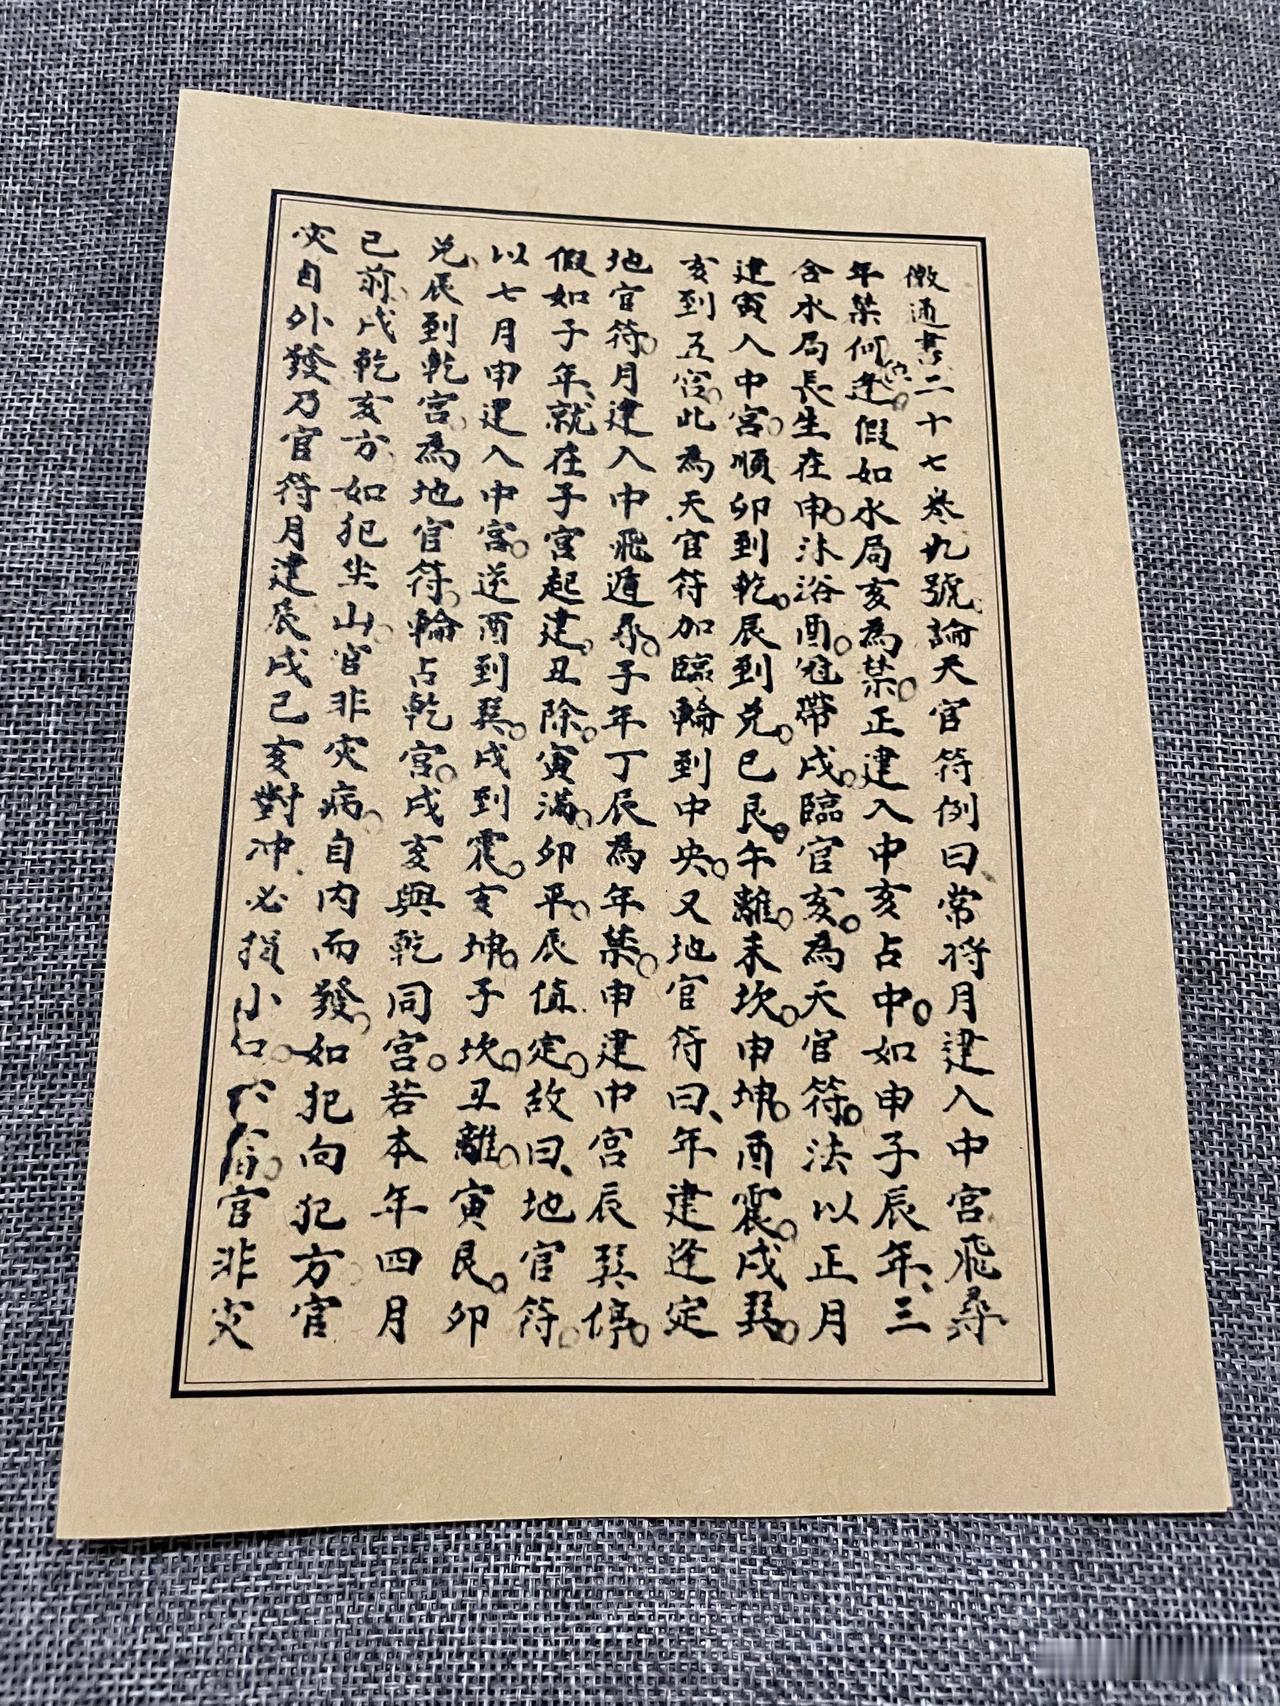 儆通書二十七卷九號論天官符例曰、常將月建入中宮飛尋
年禁何逢。假如水局亥為禁。正建入中亥占中。如申子辰年、三
合水局長生在申。沐浴酉。冠帶戌。臨官亥。為天官符。法以正月
建寅入中宮。順卯到乾。辰到兌。巳艮。午離。未坎。申坤。酉震。戌巽。
亥到五宮。此為天官符加臨輪到中央。又地官符曰、年建逢定
地官符。月建入中飛遁尋。子年丁辰為年禁。申建中宮辰巽停。
假如子年、就在子宮起建。丑除。寅滿。卯平。辰值定。故曰、地官符。
以七月申建入中宮。逆酉到巽。戌到震。亥坤。子坎。丑離。寅艮。卯
兌。辰到乾宮。為地官符。輪占乾宮。戌亥與乾同宮。若本年四月
已前戌乾亥方如犯坐山。官非灾病。自內而發。如犯向犯方。官
灾自外發乃官符月建辰戌己亥對冲必損小口。官非灾